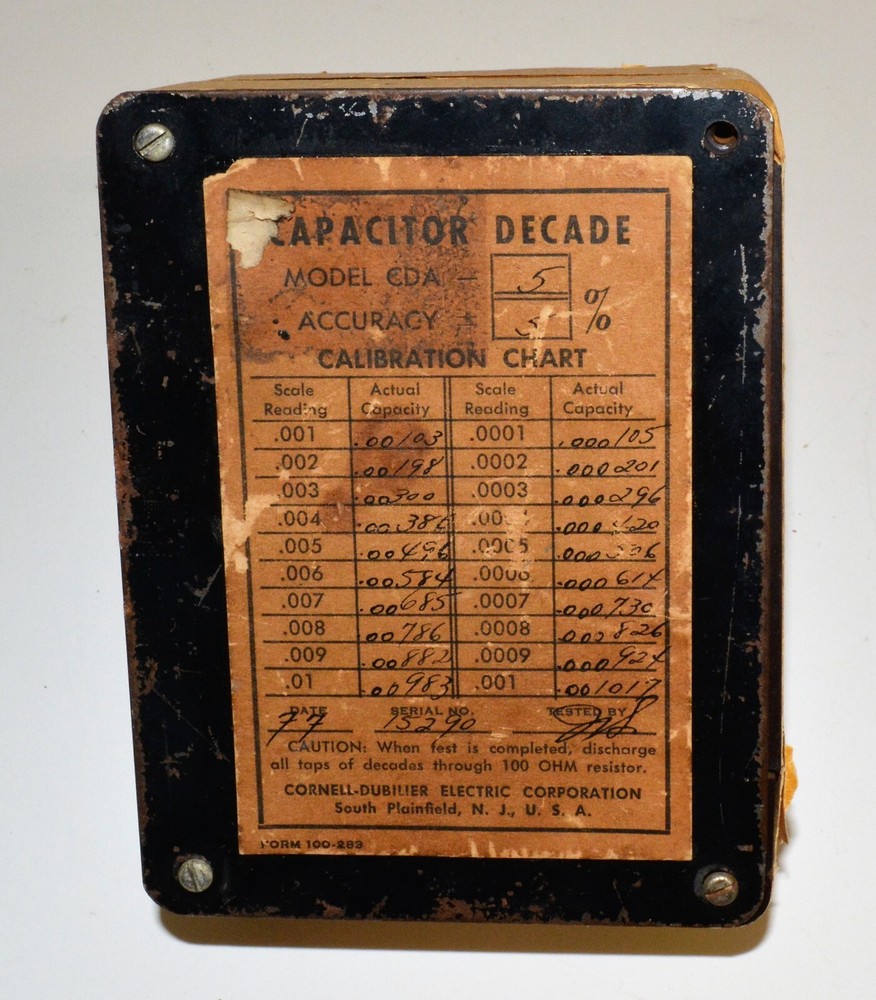 CAPACITOR DECADE
MODEL CDA - 5
ACCURACY ± 5 %
CALIBRATION CHART
Scale Reading Actual Capacity Scale Reading Actual Capacity
.001 .00103 .0001 .000105
.002 .00198 .0002 .000201
.003 .00300 .0003 .000296
.004 .00386 .000420
.005 .00496 .0005
.006 .00584 .0006 .000614
.007 .00685 .0007 .000730
.008 .00786 .0008 .000826
.009 .00882 .0009 .000924
.01 .00983 .001 .001017
DATE SERIAL NO. TESTED BY
77 15290
CAUTION: When test is completed, discharge
all taps of decades through 100 OHM resistor.
CORNELL-DUBILIER ELECTRIC CORPORATION
South Plainfield, N. J., U. S. A.
FORM 100-283